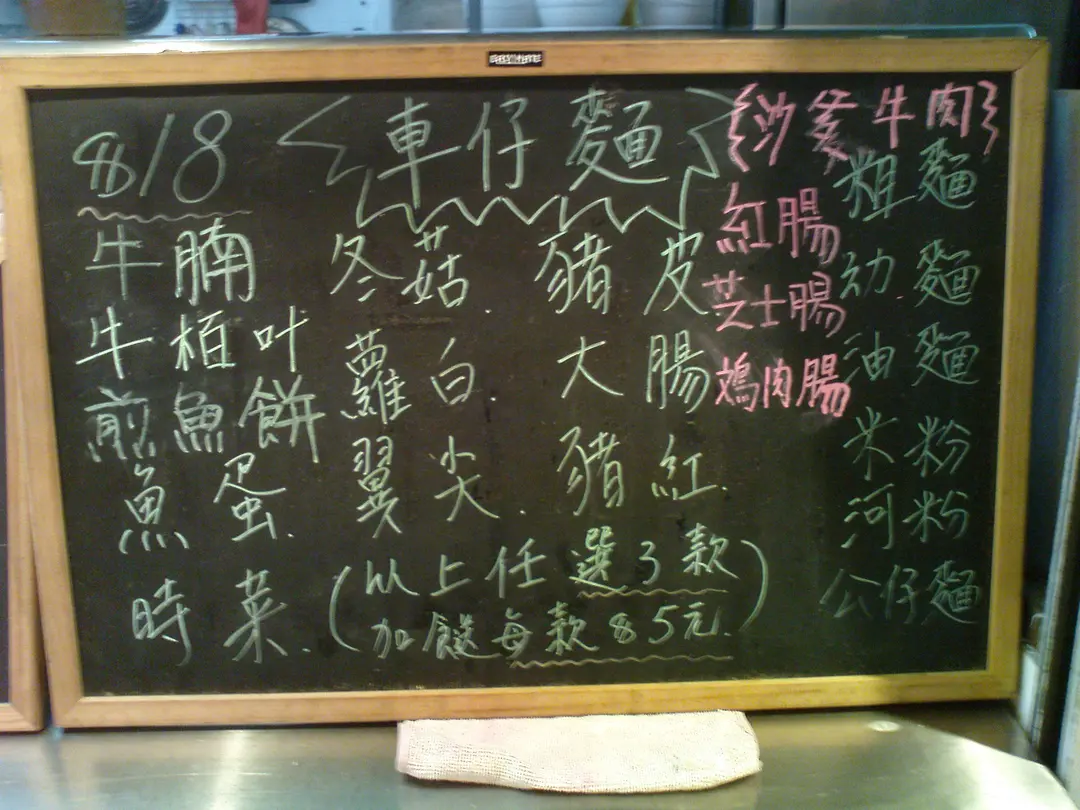 $18 車仔麵
牛腩
牛栢叶
煎魚餅
魚蛋
時菜
冬菇
蘿白
翼尖
豬皮
大腸
豬紅
(以上任選3款
加餸每款$5元)
沙爹牛肉
紅腸
芝士腸
鷄肉腸
粗麵
幼麵
油麵
米粉
河粉
公仔麵